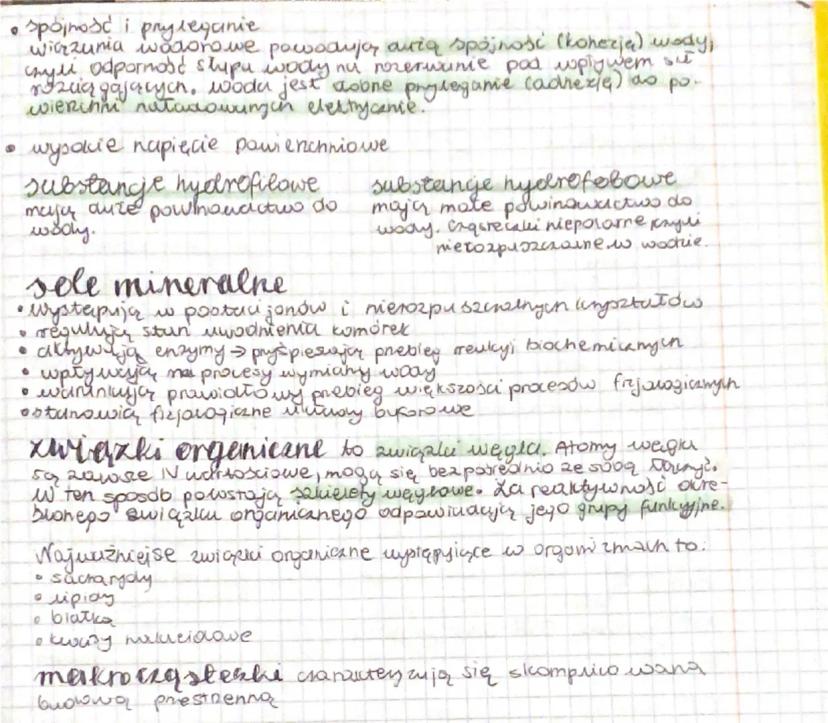 • spójność i przyleganie
wiązania wodorowe powodują dużą spójność (kohezję) wody,
czyli odporność słupa wody na rozerwanie pod wpływem sił
rozciągających. woda jest zdolne przyleganie (adhezję) do po-
wierzchni naładowanych elektrycznie.
• wysokie napięcie powierzchniowe
substancje hydrofilowe
mają duże powinowactwo do
wody.
substancje hydrofobowe
mają małe powinowactwo do
wody. cząsteczki niepolarne czyli
nierozpuszczalne w wodzie.
sole mineralne
• występują w postaci jonów i nierozpuszczalnych kryształów
• regulują stan uwodnienia komórek
• aktywują enzymy → przyśpieszają przebieg reakcji biochemicznych
• wpływają na procesy wymiany wody
• warunkują prawidłowy przebieg większości procesów fizjologicznych
• stanowią fizjologiczne buforowe
związki organiczne to związki węgla. Atomy węgla
są zawsze IV wartościowe, mogą się bezpośrednio ze sobą łączyć.
W ten sposób powstają szkielety węglowe. Za reaktywność okre-
ślonego związku organicznego odpowiadają jego grupy funkcyjne.
Najważniejsze związki organiczne występujące w organizmach to:
• sacharydy
• lipidy
• białka
• kwasy nukleidowe
makrocząsteczki charakteryzują się skomplikowaną
budową przestrzenną